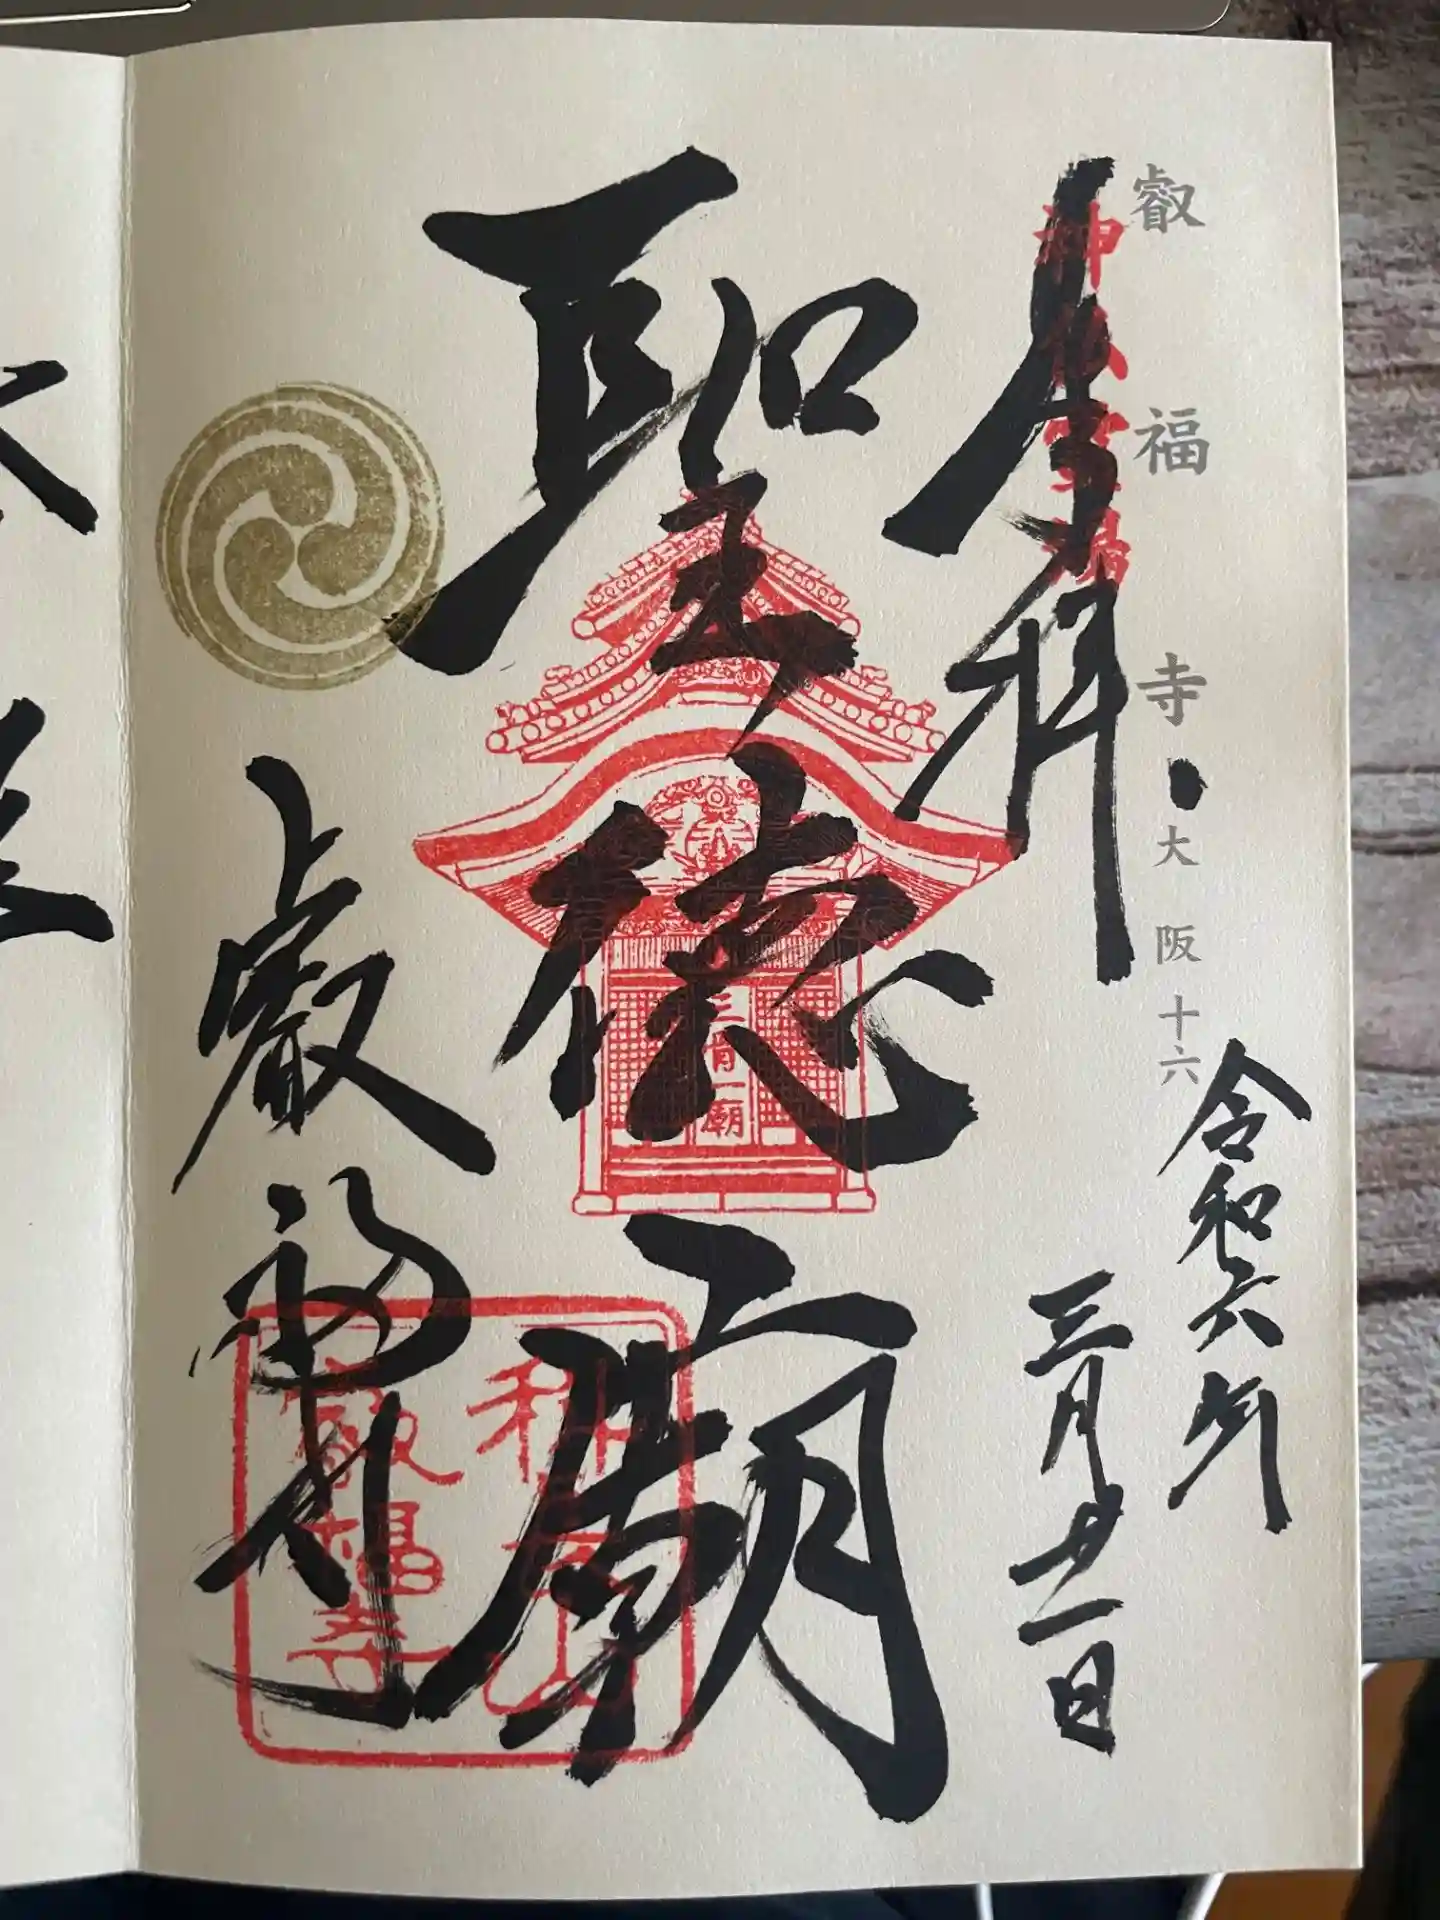 叡福寺・大阪十六
奉拝
令和六年
三月廿一日
聖徳廟
三骨一廟
叡福寺
叡福寺